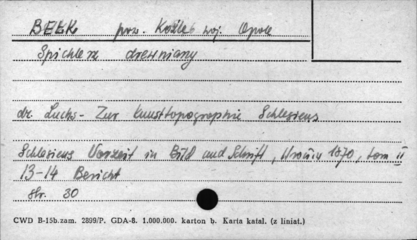 BEŁK pow. Koźle woj. Opole
Spichlerz drewniany
dr Luchs - Zur Kunsttopographie Schlesiens
Schlesiens Vorzeit in Bild und Schrift, 1870, tom II
13-14 Bericht
str. 30
CWD B-15b.zam. 2899/P. GDA-8. 1.000.000. karton b. Karta katal. (z liniat.)